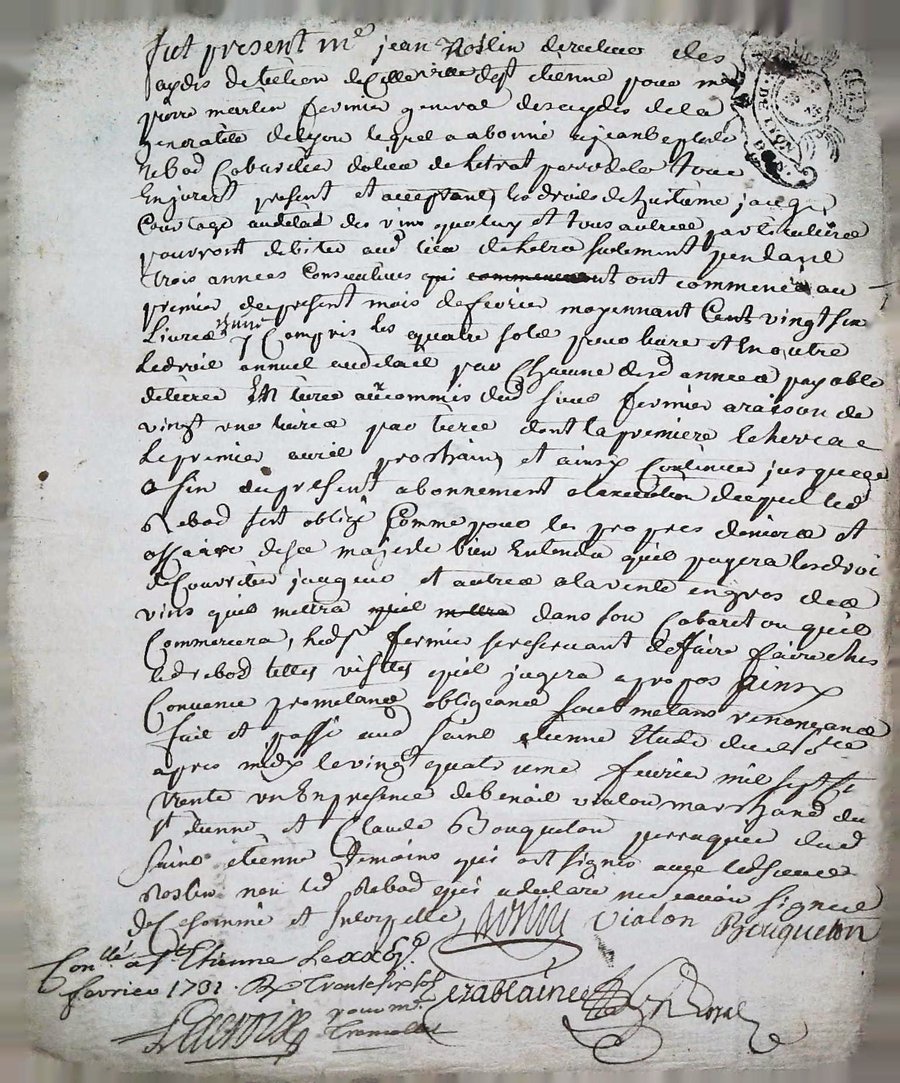 fut present mᵉ jean Roslin directeur des
aydes de l'élection de Ville de Sᵗ etienne pour mᵉ
pierre martin fermier general des aydes de la
generalité de Lyon lequel a abonné a jean baptiste
Rebod Cabartier du lieu de Lherat parroisse de la Tour
En jarest present et acceptant, les droits de huitième jauge,
Courtage audetail des vins que luy et tous autres particuliers
pourront debiter aud lieu de Lhera seulement pendant
trois années Consecutives qui commenceront ont commencé au
premier du present mois de fevrier moyennant Cent vingt six
Livres y Compris les quatre sols pour livre et En outre
Le droit annuel audetail par Chacune desd années payable
de tiers En tiers au commis dud sieur fermier a raison de
vingt une livres par tierce dont la premiere
Le premier avril prochain, et ainsy Continuer jusques
a fin du present abonnement a l'execution duquel led
Rebod sest obligé Comme pour les propres deniers et
affaires de sa majesté bien Entendu quil payera les droits
de Courtier jaugeur et autres a la vente en gros des
vins quil mettra quil mettra dans son Cabaret ou quil
Commercera, led sʳ fermier se reservant de faire faire ches
led rebod telles visittes quil jugera apropos ainsy
Convenu promettans obligeans soubmetans renonceans
fait et passé aud Saint etienne Etude du nʳᵉ
apres midy le vingt quatrieme fevrier mil sept Cᵗ
trente un En presence de benoit vialon marchand du
Sᵗ etienne et Claude Bouqueton perruquier dud
Saint etienne temoins qui ont signé avec led sieur
Roslin non led Rebod qui a declaré ne scavoir signer
de Ce sommé et Interpellé
Roslin Vialon Bouqueton
Conᵗˡˡᵉ a Sᵗ Etienne Le
fevrier 1731. Rˢ Trente six sols
pour mʳ
Lacroix
DE LYON